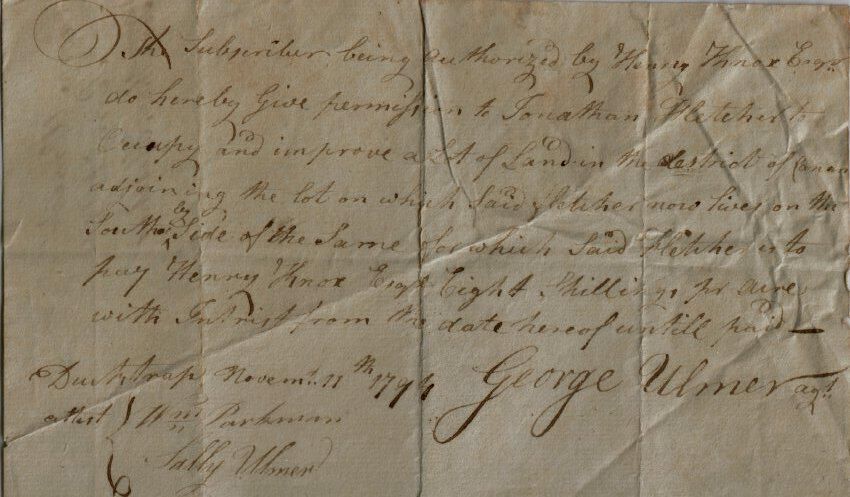 The Subscriber being authorized by Henry Knox Esqr.
do hereby Give permission to Jonathan Fletcher to
Occupy and improve a Lot of Land in the destrict of Canaan
adjoining the lot on which Said Fletcher now lives on the
Southerly Side of the Same for which Said Fletcher is to
pay Henry Knox Esqr. Eight Shillings pr acre
with Intrist from the date hereof untill paid —
Ducktrap Novemr. 11th 1794 George Ulmer agt.
attest Wm Parkman
Sally Ulmer